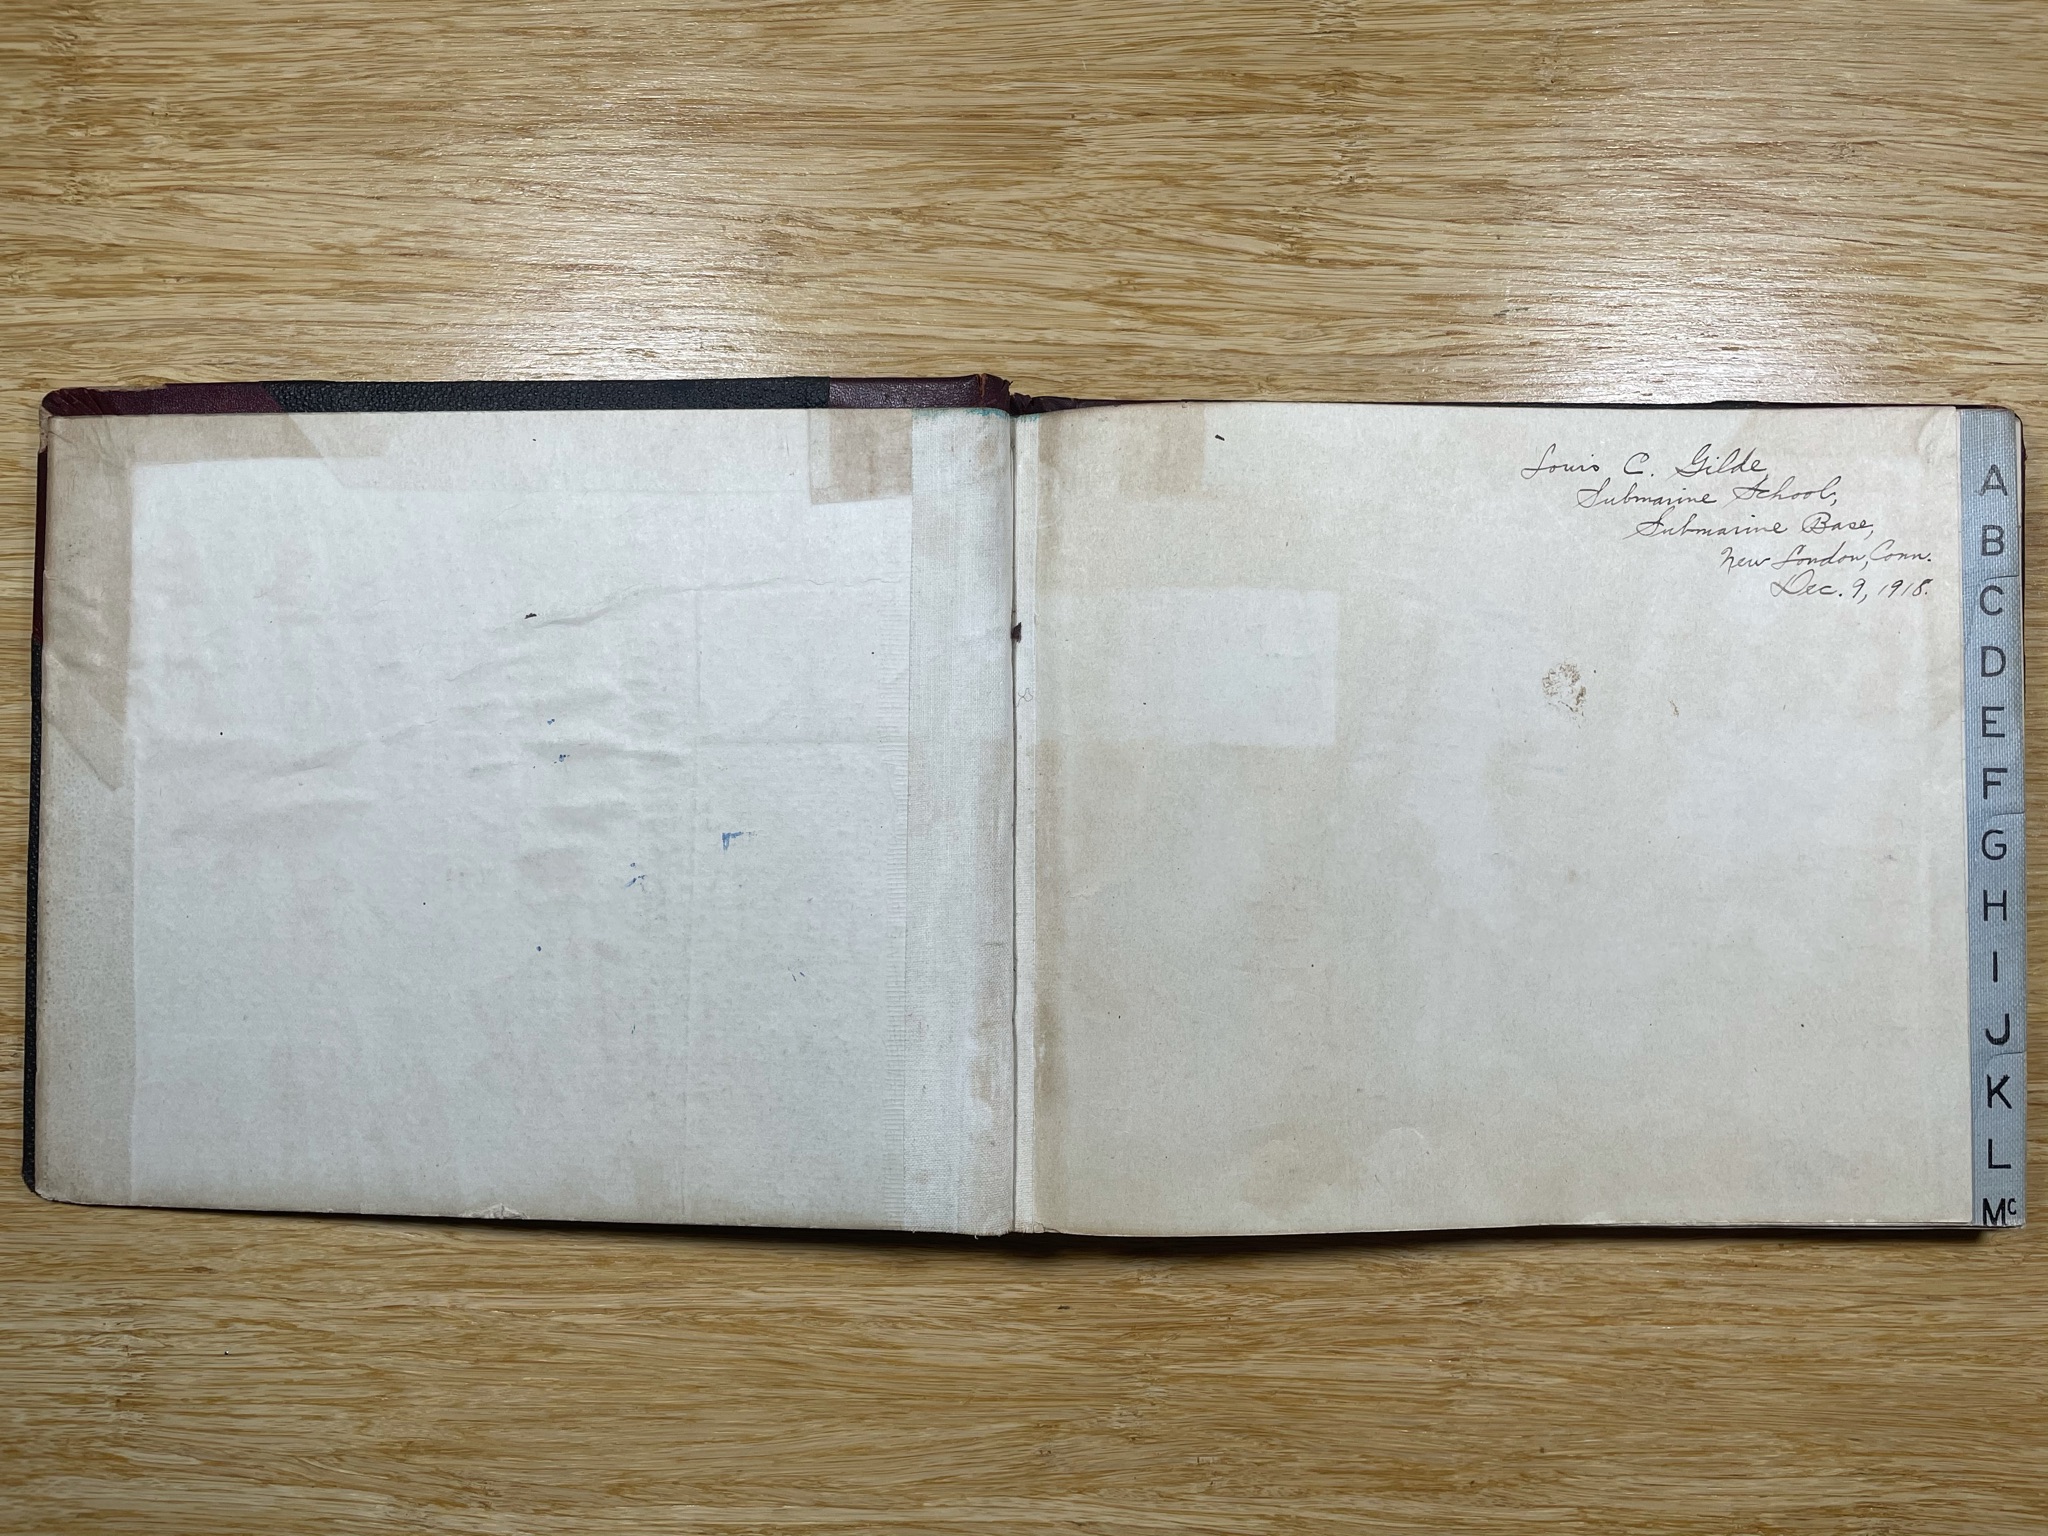 Louis C. Gilde
Submarine School,
Submarine Base,
New London, Conn.
Dec. 9, 1918.
A
B
C
D
E
F
G
H
I
J
K
L
Mc